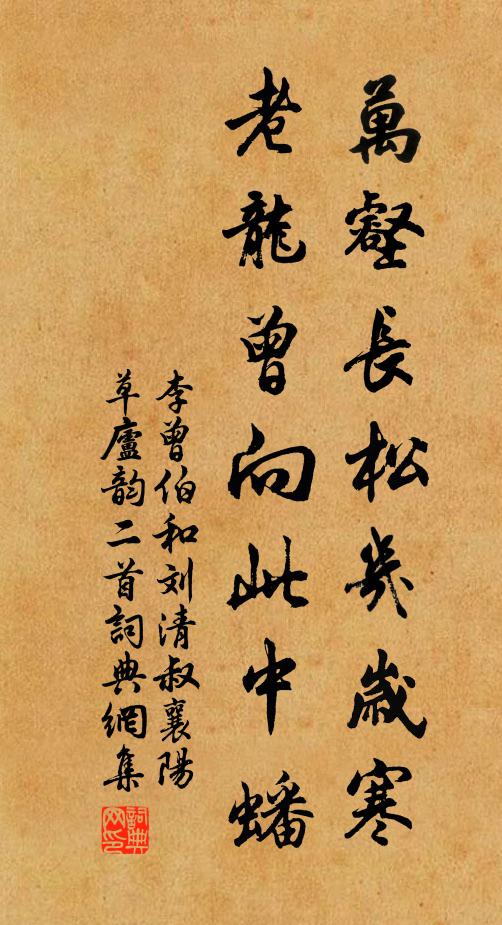 萬壑長松幾歲寒
老龍曾向此中蟠
李曾伯和刘清叔襄陽
草廬韵二首詞典網集
詞典网印